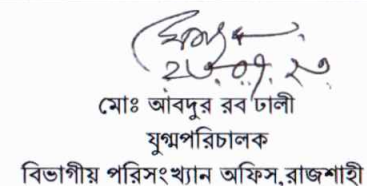 ২৩.০৭.২৩
মোঃ আবদুর রব ঢালী
যুগ্মপরিচালক
বিভাগীয় পরিসংখ্যান অফিস,রাজশাহী